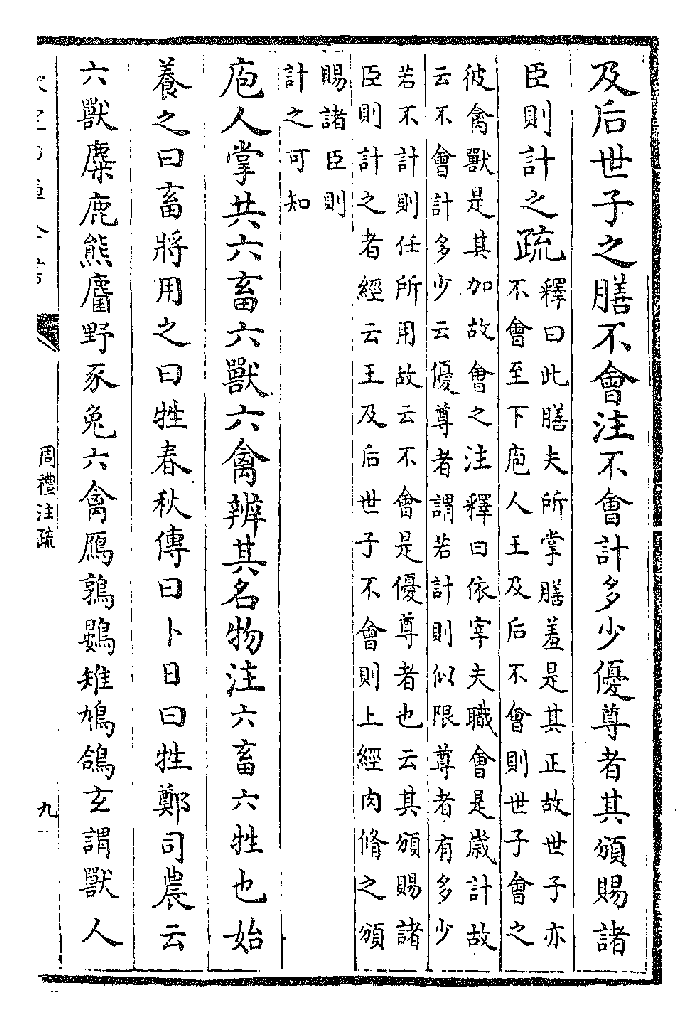 及后世子之膳不會注不會計多少優尊者其頒賜諸
臣則計之疏釋曰此膳夫所掌膳羞是其正故世子亦
不會至下庖人王及后不會則世子會之
彼禽獸是其加故會之注釋曰依宰夫職會是歲計故
云不會計多少云優尊者謂若計則似限尊者有多少
若不計則任所用故云不會是優尊者也云其頒賜諸
臣則計之者經云王及后世子不會則上經肉脩之頒
賜諸臣則
計之可知
庖人掌共六畜六獸六禽辨其名物注六畜六牲也始
養之曰畜將用之曰牲春秋傳曰卜日曰牲鄭司農云
六獸麋鹿熊麕野豕兔六禽鴈鶉鷃雉鳩鴿玄謂獸人
周禮注疏
九